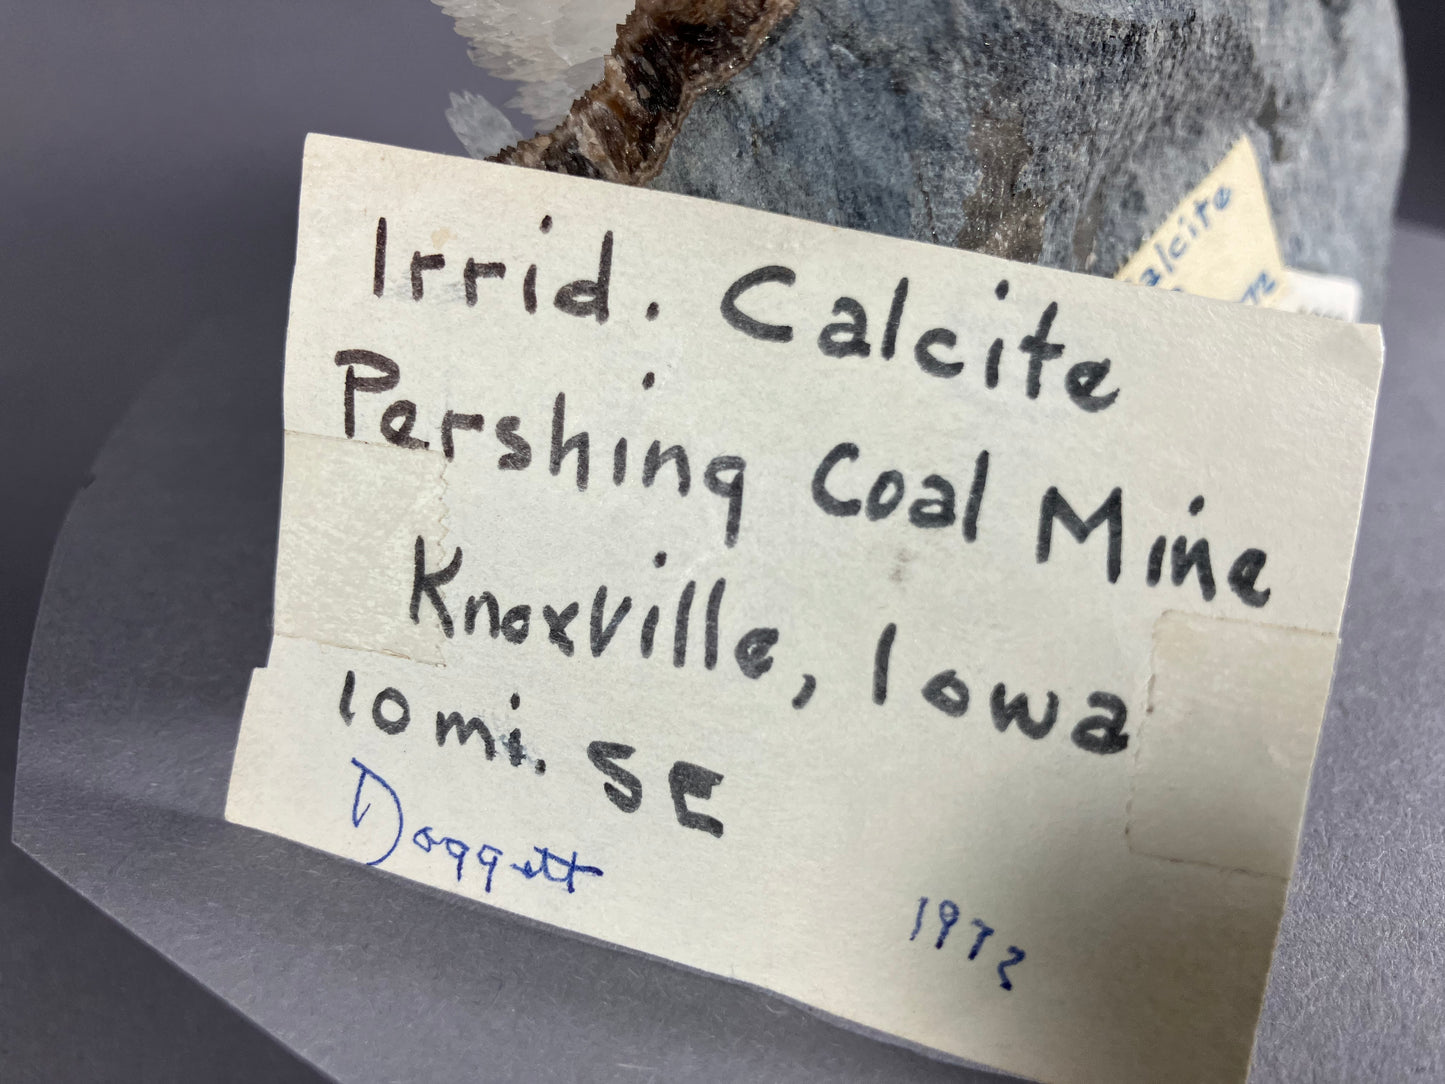 Irrid. Calcite
Pershing Coal Mine
Knoxville, Iowa
10 mi. SE
Doggett
1972
alcite
72